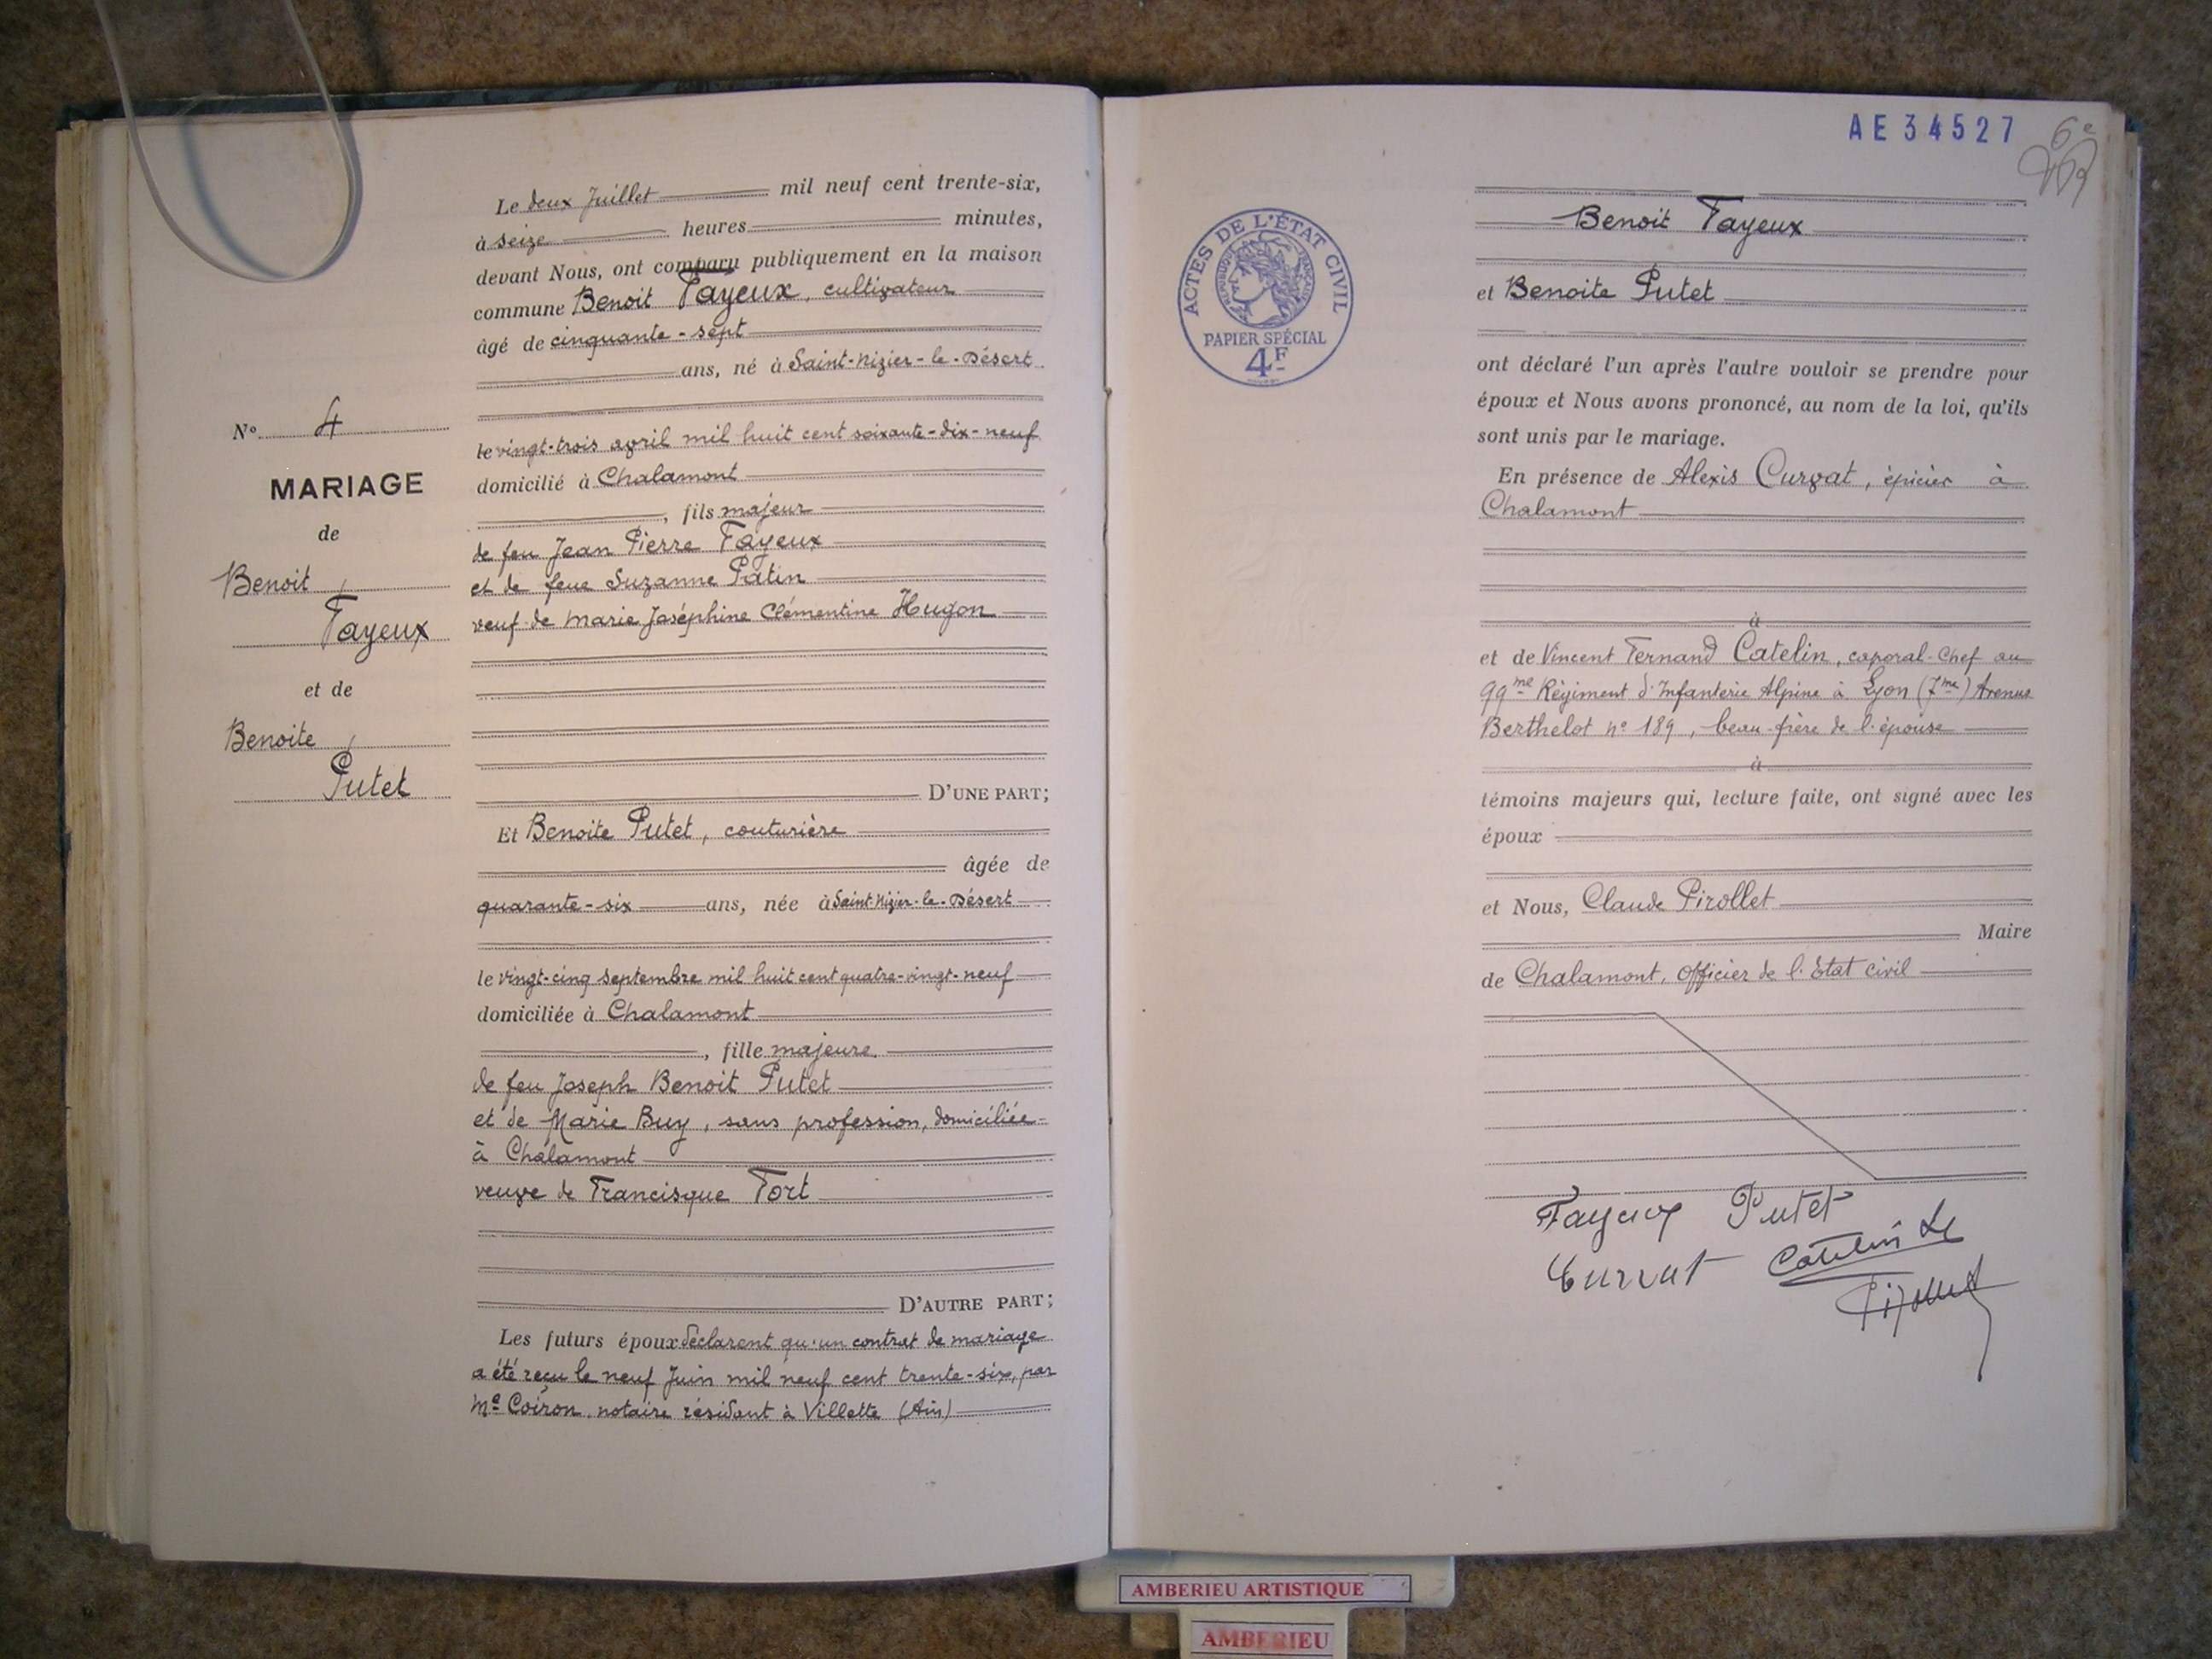 Le deux Juillet mil neuf cent trente-six,
à seize heures minutes,
devant Nous, ont comparu publiquement en la maison
commune Benoit Fayeux, cultivateur
âgé de cinquante-sept
ans, né à Saint-Nizier-le-Désert
le vingt-trois avril mil huit cent soixante-dix-neuf
domicilié à Chalamont
, fils majeur
de feu Jean Pierre Fayeux
et de feue Suzanne Patin
veuf de Marie Joséphine Clémentine Hugon
D'UNE PART;
Et Benoite Putet, couturière
âgée de
quarante-six ans, née à Saint-Nizier-le-Désert
le vingt-cinq septembre mil huit cent quatre-vingt-neuf
domiciliée à Chalamont
, fille majeure
de feu Joseph Benoit Putet
et de Marie Buy, sans profession, domiciliée
à Chalamont
veuve de Francisque Fort
D'AUTRE PART;
Les futurs époux déclarent qu'un contrat de mariage
a été reçu le neuf Juin mil neuf cent trente-six, par
Me Coiron, notaire résidant à Villette (Ain)
N° 4
MARIAGE
de
Benoit
Fayeux
et de
Benoite
Putet
AE34527
6e
ACTES DE L'ÉTAT CIVIL
RÉPUBLIQUE FRANÇAISE
PAPIER SPÉCIAL
4F
Benoit Fayeux
et Benoite Putet
ont déclaré l'un après l'autre vouloir se prendre pour
époux et Nous avons prononcé, au nom de la loi, qu'ils
sont unis par le mariage.
En présence de Alexis Curvat, épicier à
Chalamont
à
et de Vincent Fernand Catelin, caporal-chef au
99me Régiment d'Infanterie Alpine à Lyon (7me) Avenue
Berthelot n° 189, beau-frère de l'épouse
à
témoins majeurs qui, lecture faite, ont signé avec les
époux
et Nous, Claude Pirollet
Maire
de Chalamont, Officier de l'Etat civil
Fayeux Putet
Curvat Catelin
Pirollet
AMBERIEU ARTISTIQUE
AMBERIEU